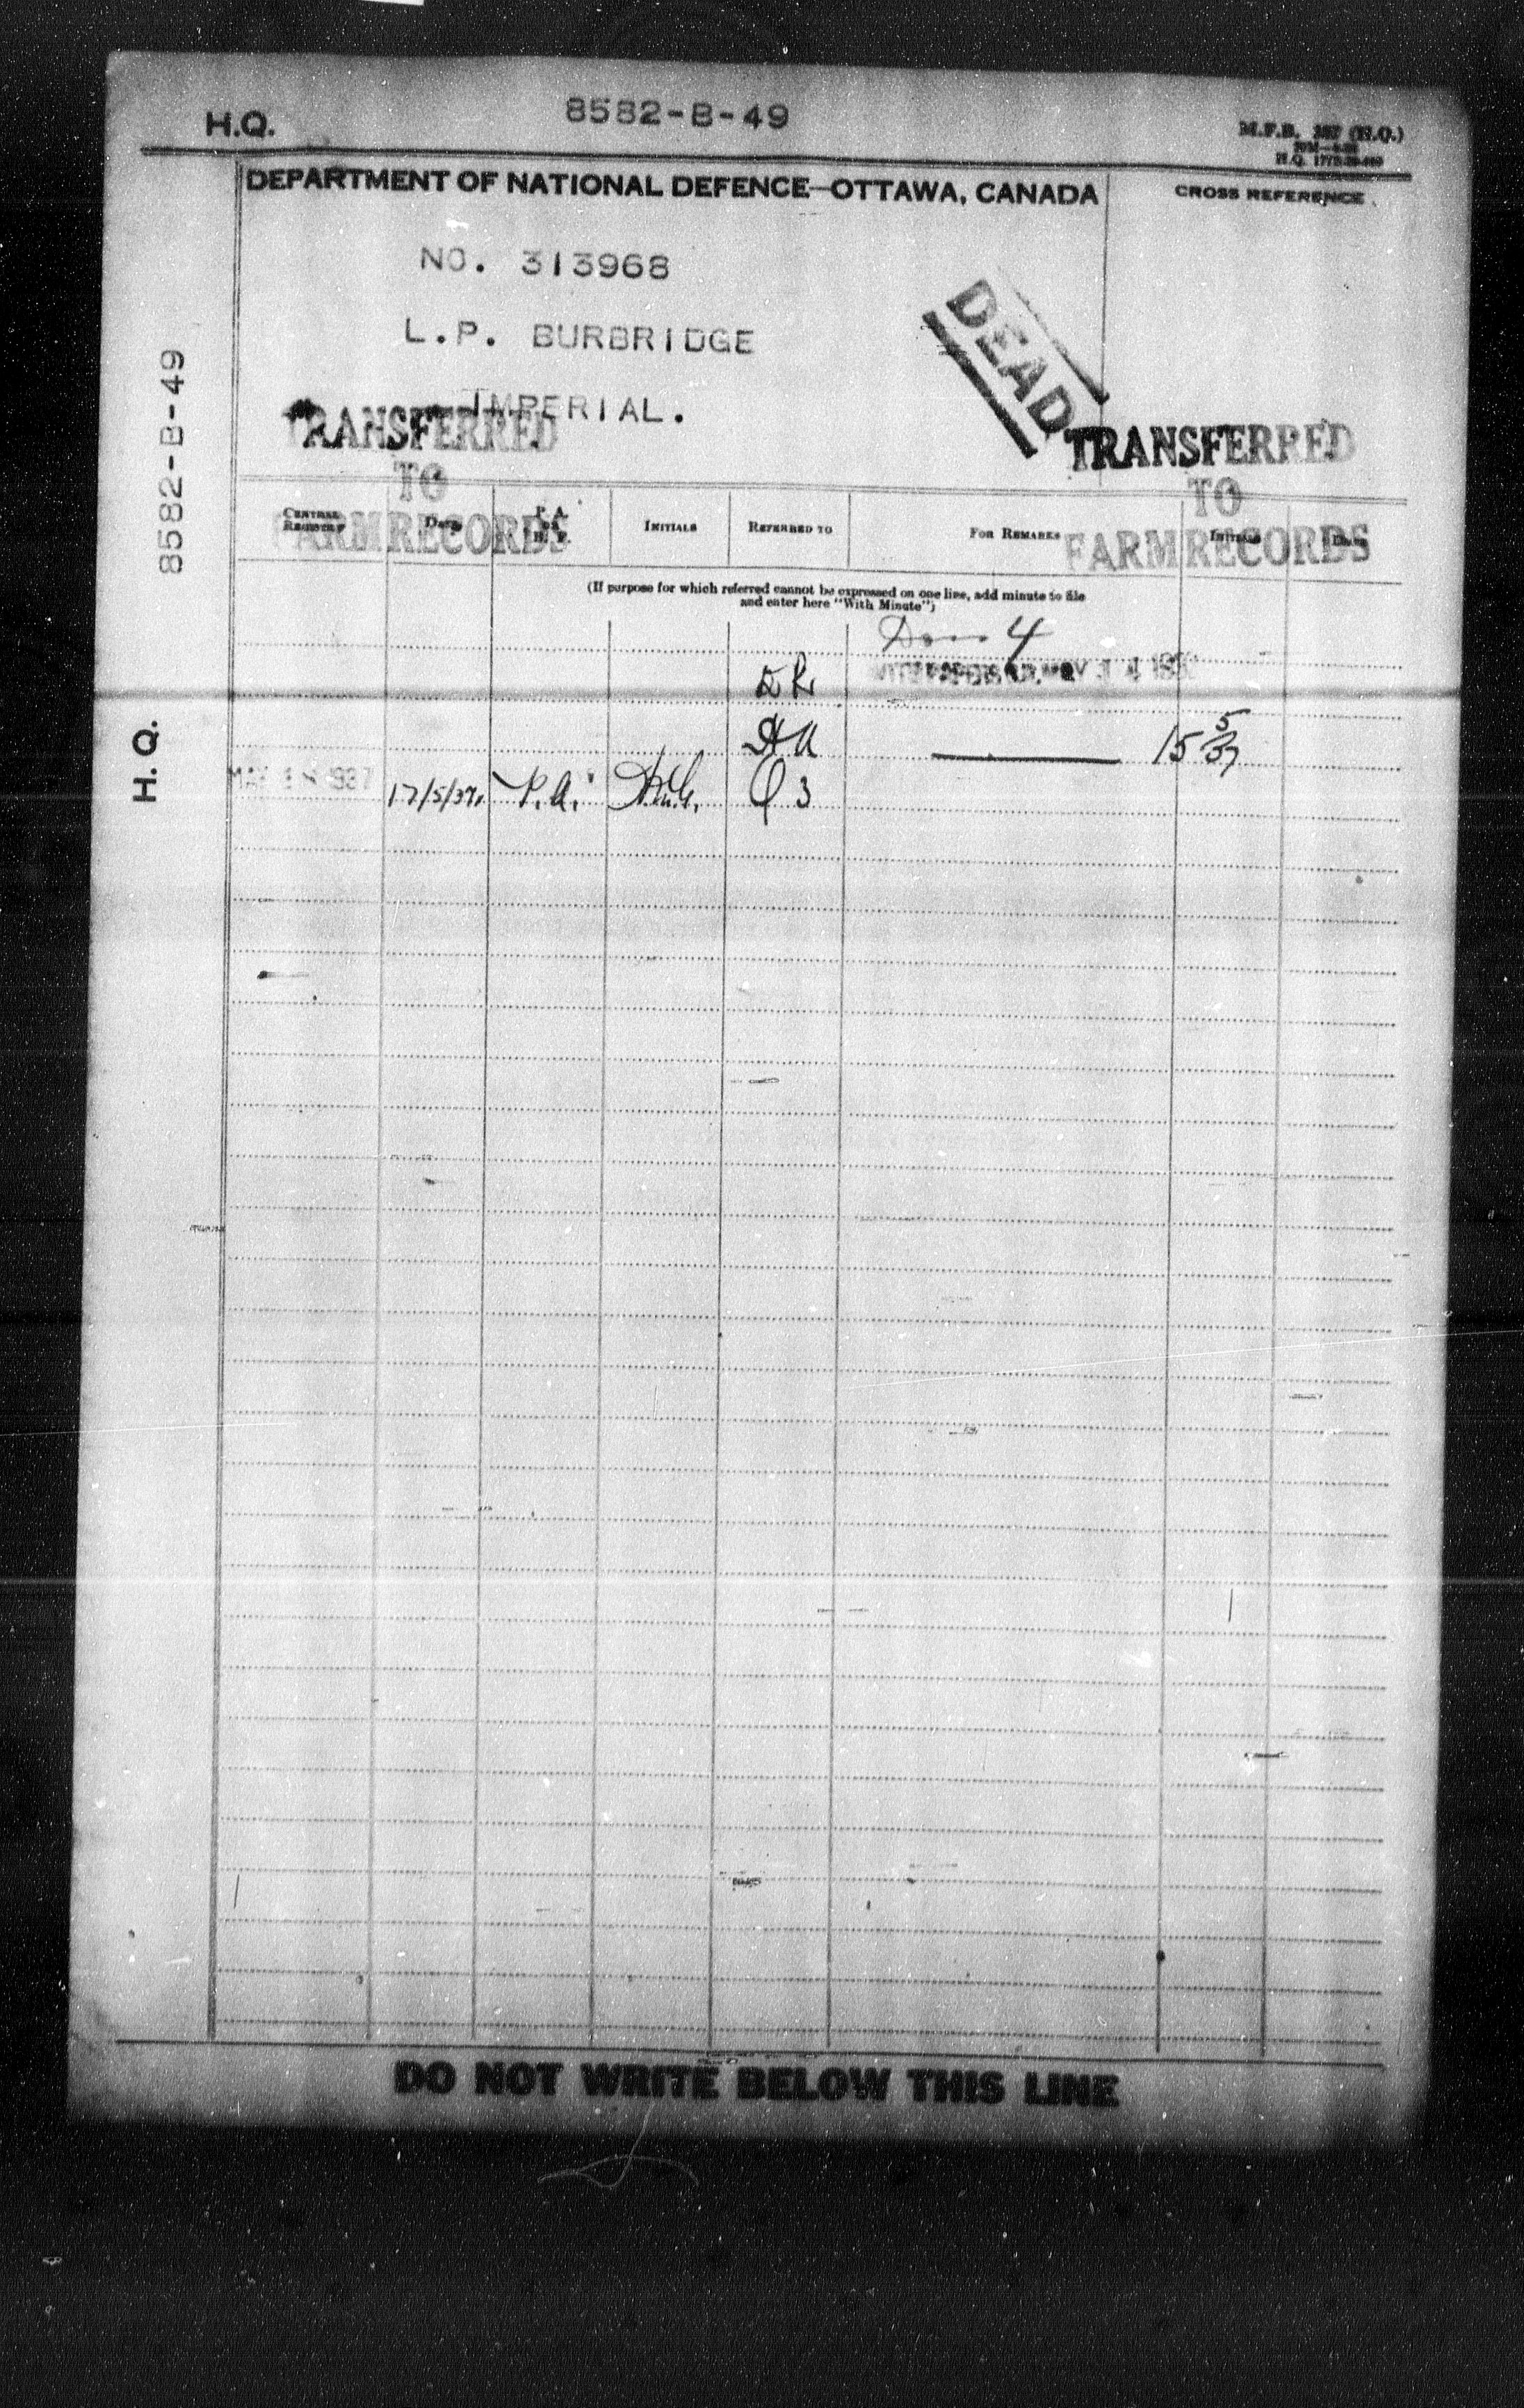 H.Q.
8582-B-49
M.F.B. (H.Q.)
H.Q.
DEPARTMENT OF NATIONAL DEFENCE—OTTAWA, CANADA
CROSS REFERENCE
NO. 313968
L.P. BURBRIDGE
IMPERIAL.
DEAD
TRANSFERRED
TO
FARM RECORDS
TRANSFERRED
TO
FARM RECORDS
8582-B-49
H.Q.
CENTRAL REGISTRY
DATE
P. A. OR B. F.
INITIALS
REFERRED TO
FOR REMARKS
INITIALS
DATE
(If purpose for which referred cannot be expressed on one line, add minute to file
and enter here "With Minute")
4
15 5/37
17/5/37. P.A. Q 3
DO NOT WRITE BELOW THIS LINE